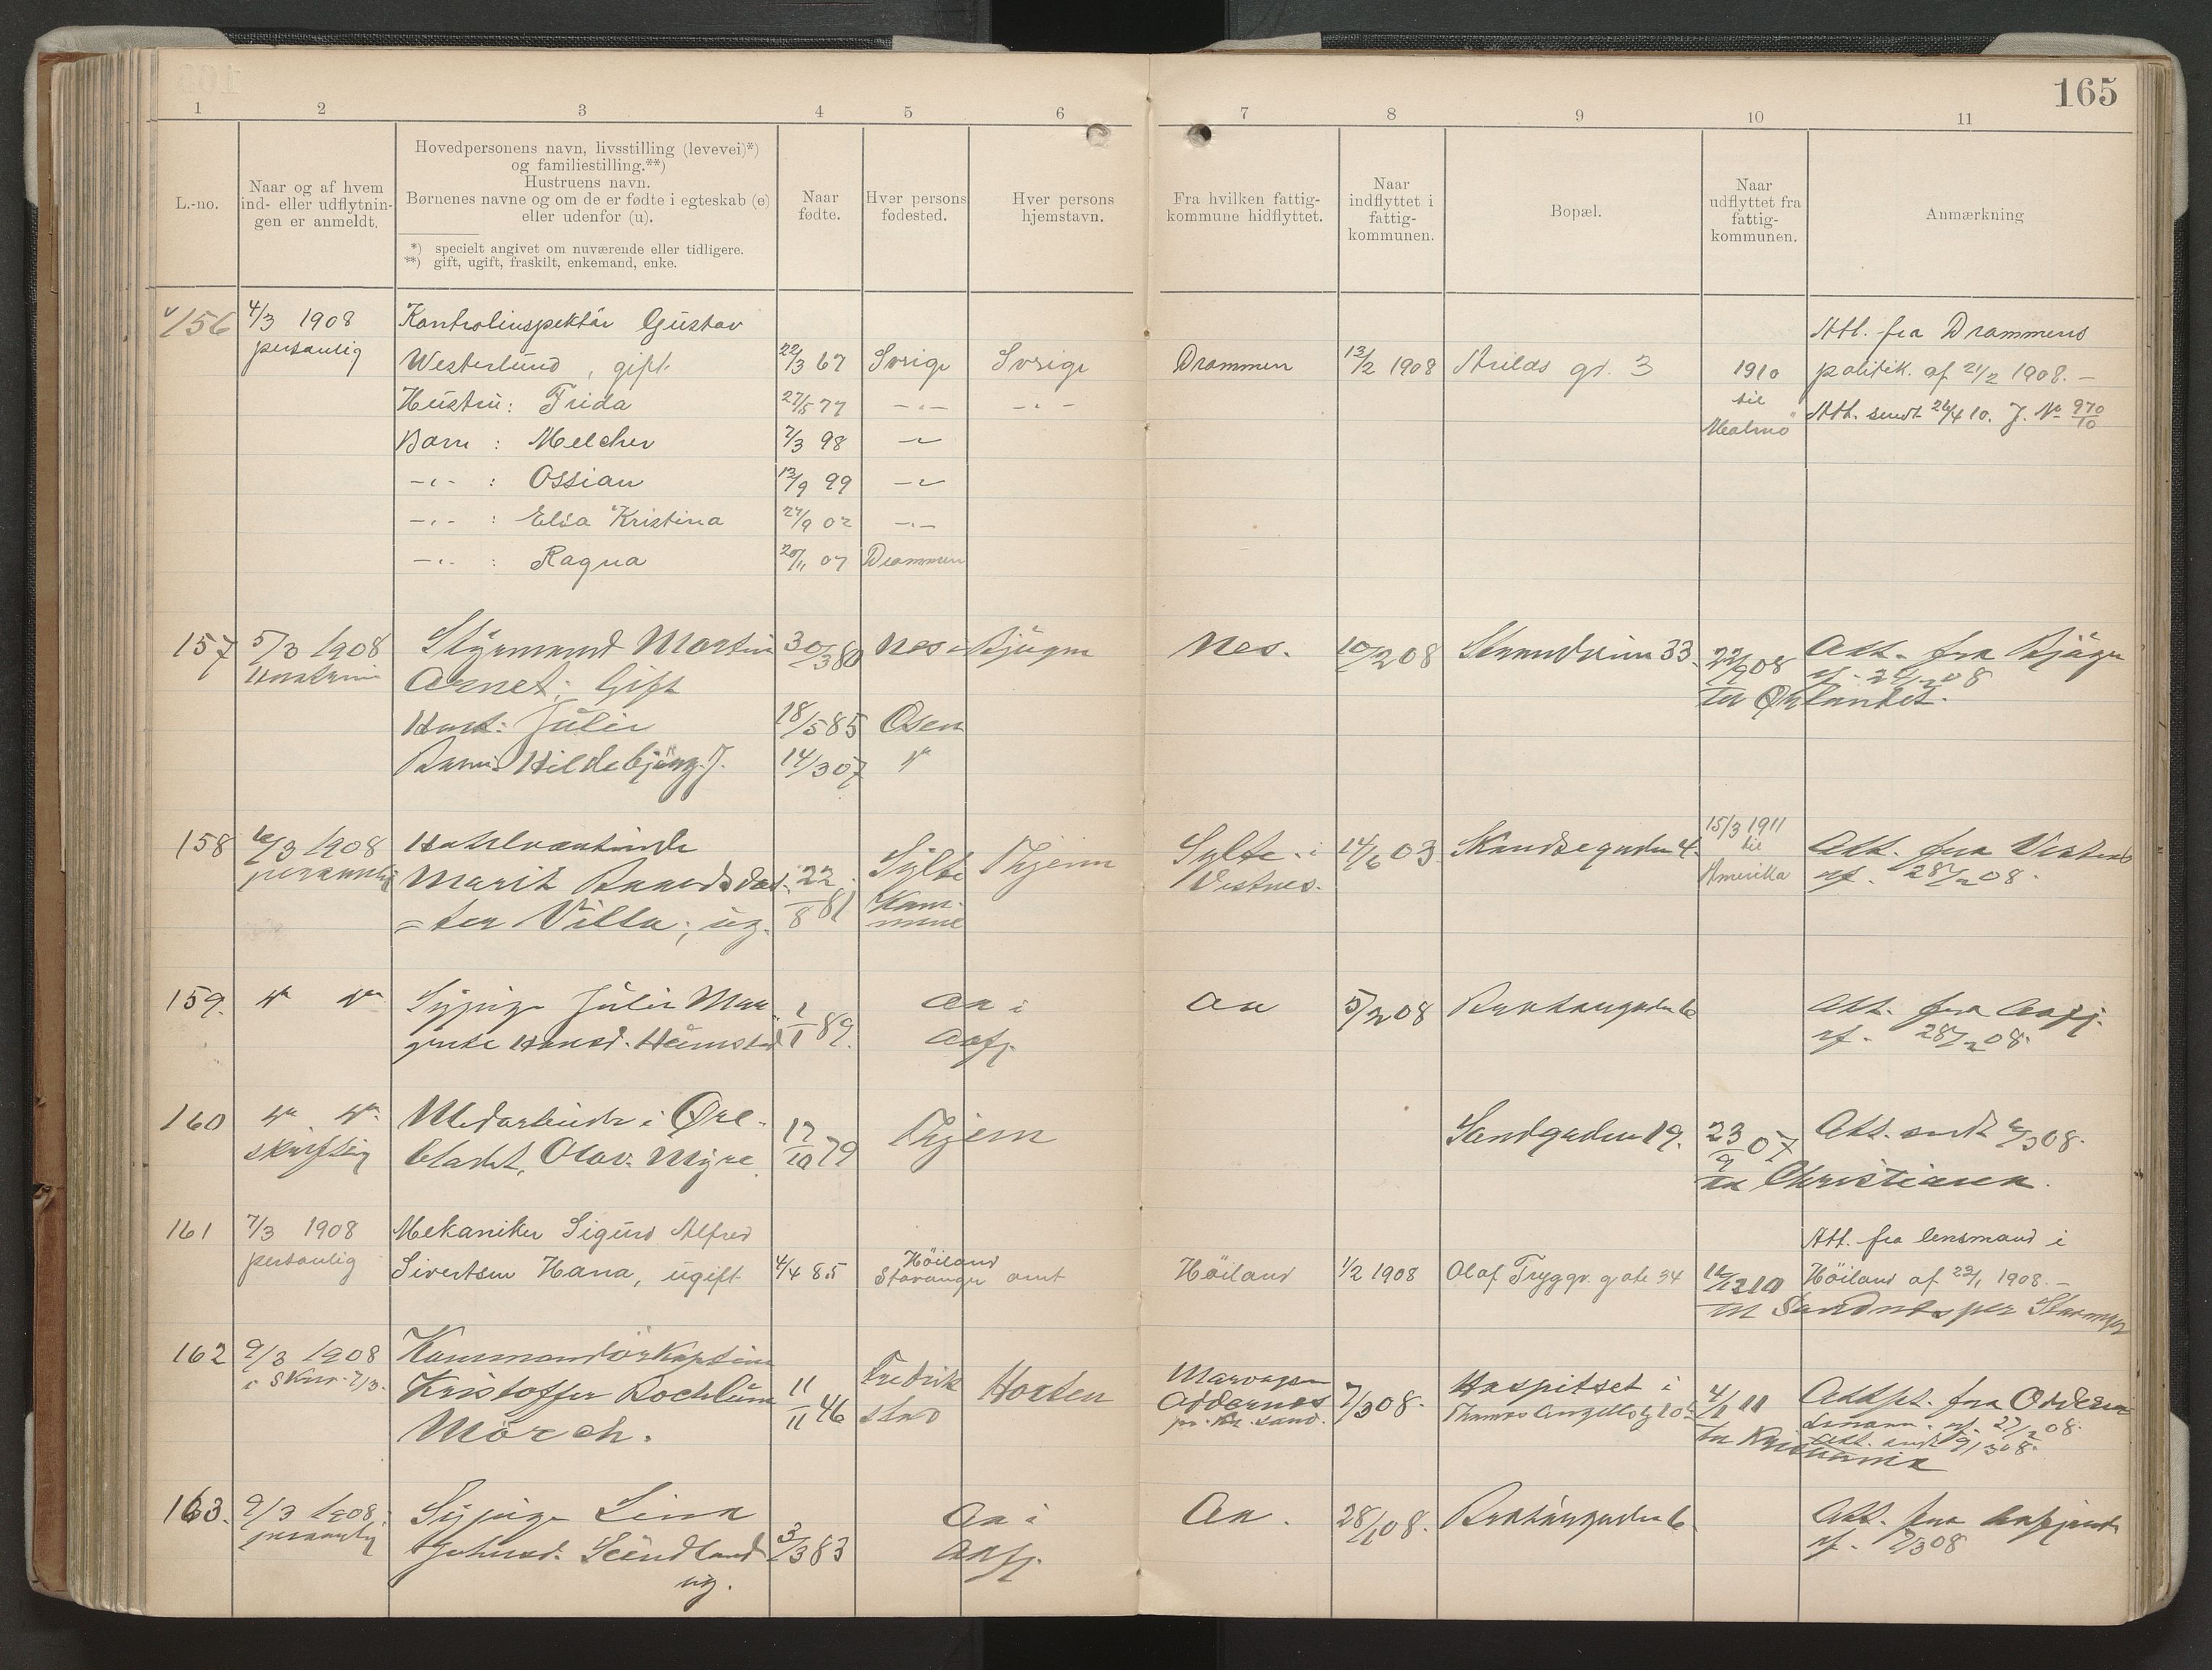 165
1 2 3 4 5 6 7 8 9 10 11
L.-no.
Naar og af hvem
ind- eller udflytnin-
gen er anmeldt.
Hovedpersonens navn, livsstilling (levevei)*)
og familiestilling.**)
Hustruens navn.
Børnenes navne og om de er fødte i egteskab (e)
eller udenfor (u).
*) specielt angivet om nuværende eller tidligere.
**) gift, ugift, fraskilt, enkemand, enke.
Naar
fødte.
Hver persons
fødested.
Hver persons
hjemstavn.
Fra hvilken fattig-
kommune hidflyttet.
Naar
indflyttet i
fattig-
kommunen.
Bopæl.
Naar
udflyttet fra
fattig-
kommunen.
Anmærkning
156 4/3 1908 Kontrolinspektør Gustav Att. fra Drammens
personlig Westerlund, gift. 22/3 67 Sverige Sverige Drammen 13/2 1908 Arilds gd. 3 1910 politik. af 21/2 1908. —
Hustru: Frida 27/5 77 —„— —„— til Att. sendt 26/4 10. J. No 970/10
Barn : Melcher 7/3 98 —„— Malmö
—„— : Ossian 13/9 99 —„—
—„— : Elsa Kristina 27/9 02 —„—
—„— : Ragna 20/11 07 Drammen
157 5/3 1908 Styrmand Martin 30/3 80 Nes i Bjugn Nes. 10/2 08 Strandveien 33. 22/9 08 Att. fra Bjugn
Hustruen Arnet; Gift af 2 /2 08
Hust: Julie 18/5 85 Osen til Ørlandet.
Barn: Hildebjørg J. 14/3 07 "
158 6/3 1908 Hotelvertinde 14/6 03 Skandsegaden 4. 15/3 1911
personlig Marit 22/8 81 Sylte Thjem Sylte i til Att. fra Vestnes
-ter Villa; ug. Kom- Vestnes. Amerika af 28/2 08.
mune
159. Sypige Julie Mar- 1/1 89. Aa i Aa 5/2 08 Att. fra Aafj.
grete Hansd. Aafj. af 28/2 08
160 Medarbeider i Øre- 17/10 79 Thjem Sandgaden 19. 23/9 07 Att. sendt 6/3 08.
skriftlig bladet, Olav Myre til Christiania.
161 7/3 1908 Mekaniker Sigurd Alfred Att. fra lensmand i
personlig Sivertsen Hana, ugift 4/4 85 Höiland Höiland 1/2 1908 Olaf Tryggv. gate 34 Höiland af 29/1 1908. —
Stavanger amt til Sandnes per Stavanger
162 9/3 1908 Kommandörkaptein
skr. 7/3. Kristoffer 11/11 46 Fredrik Horten Oddernes 7/3 08. Hospitset i 4/1 11
Mörch. stad Thomas Angells g 10 til Kristiania
163. 9/3 1908. Sypige Lina 3/3 83 Aa i Aa. 28/1 08. Att. fra Aafjord
personlig Johnsd. Sundland Aafj. af 7/3 08
ug.